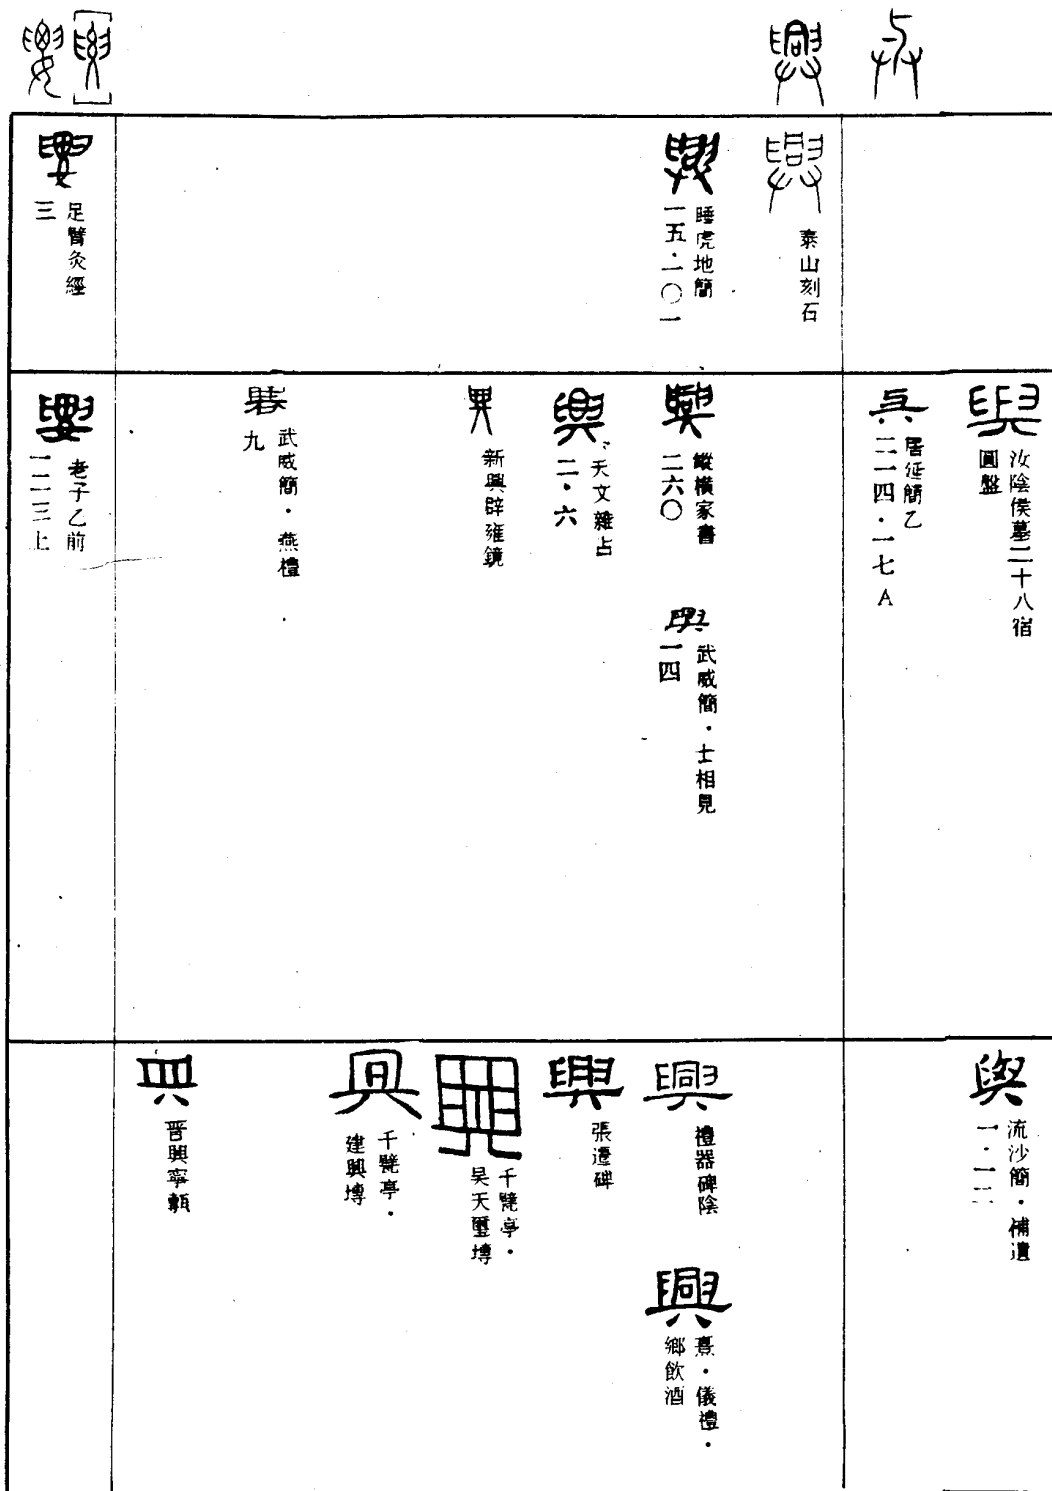 泰山刻石
興
睡虎地簡
一五·一〇一
足臂灸經
三
與
汝陰侯墓二十八宿
圓盤
居延簡乙
二一四·一七A
興
縱橫家書
二六〇
武威簡·士相見
一四
興
天文雜占
二·六
新興辟雍鏡
武威簡·燕禮
九
老子乙前
一二三上
與
流沙簡·補遺
一·一二
興
禮器碑陰
興
熹·儀禮·
鄉飲酒
興
張遷碑
千甓亭·
吴天璽塼
千甓亭·
建興塼
晋興寧